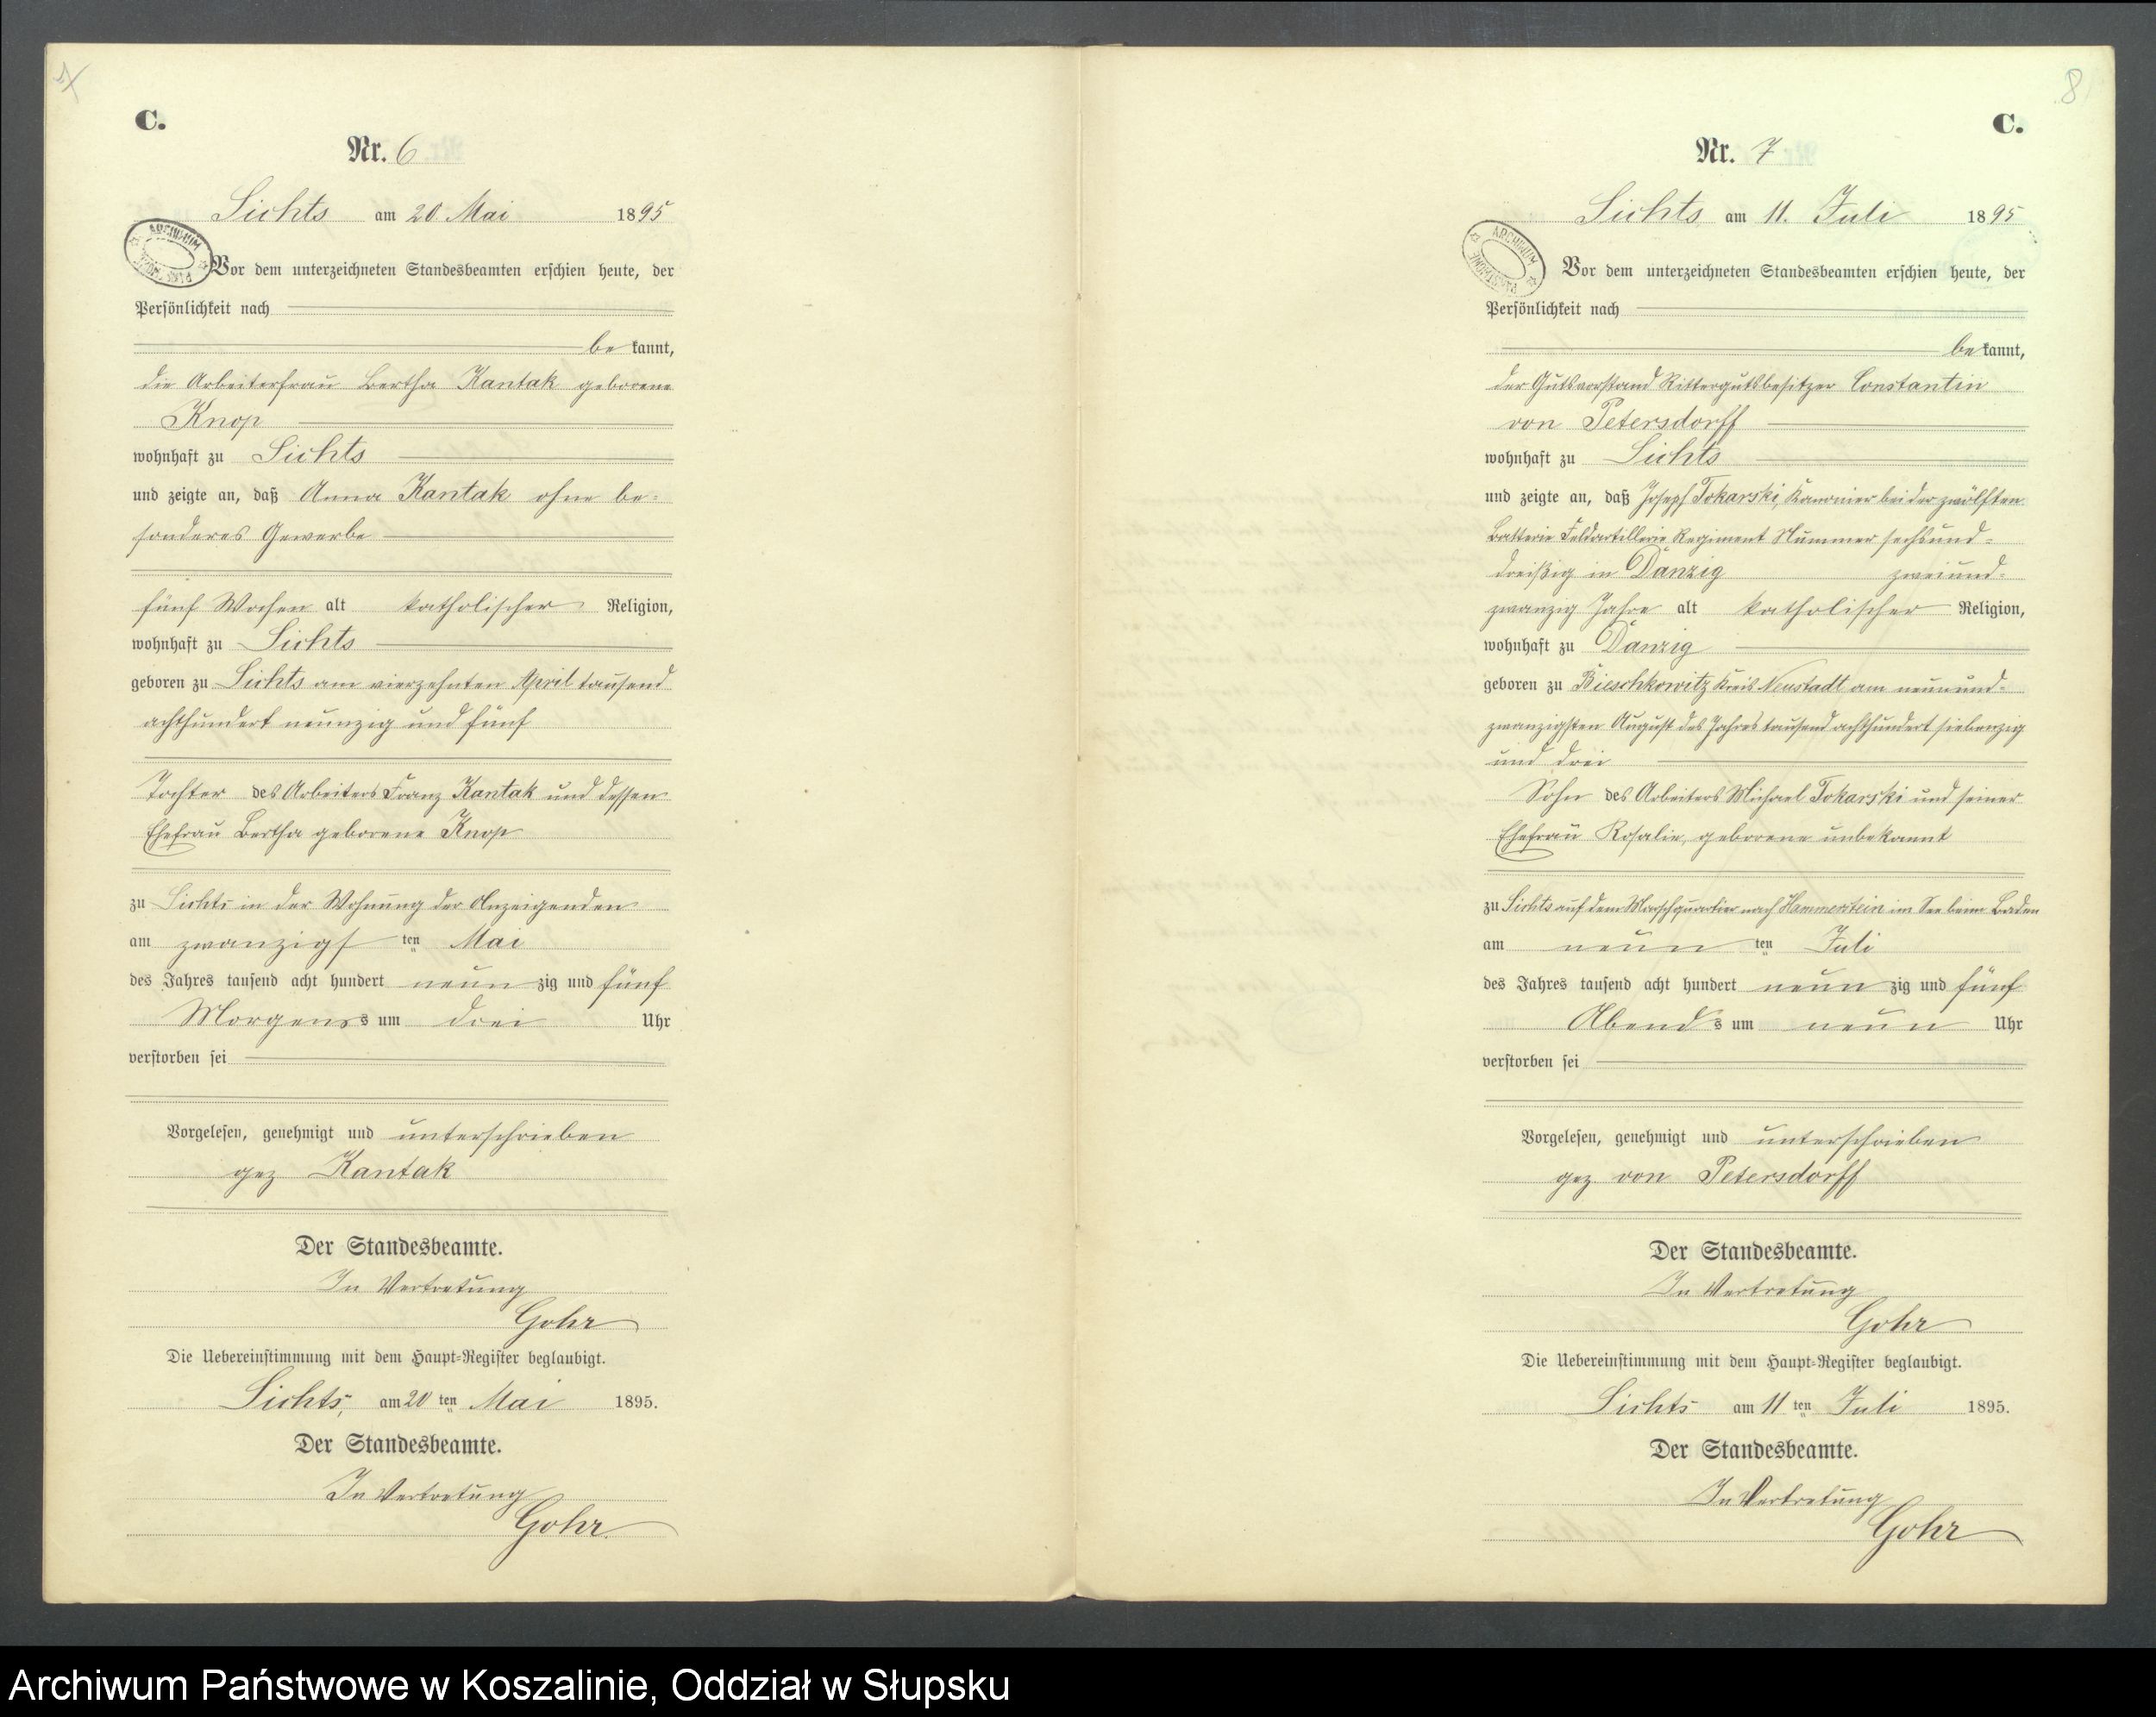 C.
Nr. 6
Lichts am 20 Mai 1895
ARCHIWUM
Vor dem unterzeichneten Standesbeamten erschien heute, der
Persönlichkeit nach
bekannt,
die Arbeiterfrau Bertha Kantak geborene
Knop
wohnhaft zu Lichts
und zeigte an, daß Anna Kantak ohne be-
sonderes Gewerbe
fünf Wochen alt katholischer Religion,
wohnhaft zu Lichts
geboren zu Lichts am vierzehnten April tausend
achthundert neunzig und fünf
Tochter des Arbeiters Franz Kantak und dessen
Ehefrau Bertha geborene Knop
zu Lichts in der Wohnung der Anzeigenden
am zwanzigsten Mai
des Jahres tausend acht hundert neunzig und fünf
Morgens um drei Uhr
verstorben sei
Vorgelesen, genehmigt und unterschrieben
gez Kantak
Der Standesbeamte.
In Vertretung
Gohr
Die Uebereinstimmung mit dem Haupt-Register beglaubigt.
Lichts, am 20 ten Mai 1895.
Der Standesbeamte.
In Vertretung
Gohr.
8
C.
Nr. 7
Lichts am 11. Juli 1895
ARCHIWUM PAŃSTWOWE
Vor dem unterzeichneten Standesbeamten erschien heute, der
Persönlichkeit nach
bekannt,
der Gutsvorstand Rittergutsbesitzer Constantin
von Petersdorff
wohnhaft zu Lichts
und zeigte an, daß Joseph Tokarski, Kanonier bei der zwölften
Batterie Feldartillerie Regiment Nummer sechsund-
dreißig in Danzig zweiund-
zwanzig Jahre alt katholischer Religion,
wohnhaft zu Danzig
geboren zu Bieschkowitz Kreis Neustadt am neunund-
zwanzigsten August des Jahres tausend achthundert siebenzig
und drei
Sohn des Arbeiters Michael Tokarski und seiner
Ehefrau Rosalie, geborene unbekannt
zu Lichts auf dem Marschquartier nach Hammerstein im See beim Baden
am neun ten Juli
des Jahres tausend acht hundert neunzig und fünf
Abends um neun Uhr
verstorben sei
Vorgelesen, genehmigt und unterschrieben
gez. von Petersdorff
Der Standesbeamte.
In Vertretung
Gohr
Die Uebereinstimmung mit dem Haupt-Register beglaubigt.
Lichts am 11 ten Juli 1895.
Der Standesbeamte.
In Vertretung
Gohr
Archiwum Państwowe w Koszalinie, Oddział w Słupsku